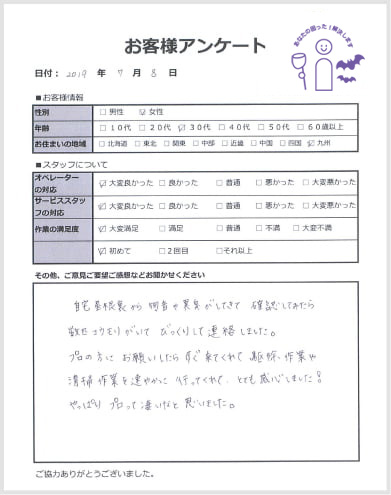 あなたの困った!解決します
お客様アンケート
日付: 2019 年 7 月 8 日
■お客様情報
性別 □男性 ☑女性
年齢 □10代 □20代 ☑30代 □40代 □50代 □60歳以上
お住まいの地域 □北海道 □東北 □関東 □中部 □近畿 □中国 □四国 ☑九州
■スタッフについて
オペレーターの対応 ☑大変良かった □良かった □普通 □悪かった □大変悪かった
サービススタッフの対応 ☑大変良かった □良かった □普通 □悪かった □大変悪かった
作業の満足度 ☑大変満足 □満足 □普通 □不満 □大変不満
☑初めて □2回目 □それ以上
その他、ご意見ご要望ご感想などお聞かせください
自宅屋根裏から物音や異臭がしてきて 確認してみたら
数匹コウモリがいて びっくりして連絡しました。
プロの方に お願いしたらすぐ来てくれて 駆除作業や
清掃作業を速やかに行ってくれて、とても感心しました!
やっぱりプロって凄いなと思いました。
ご協力ありがとうございました。